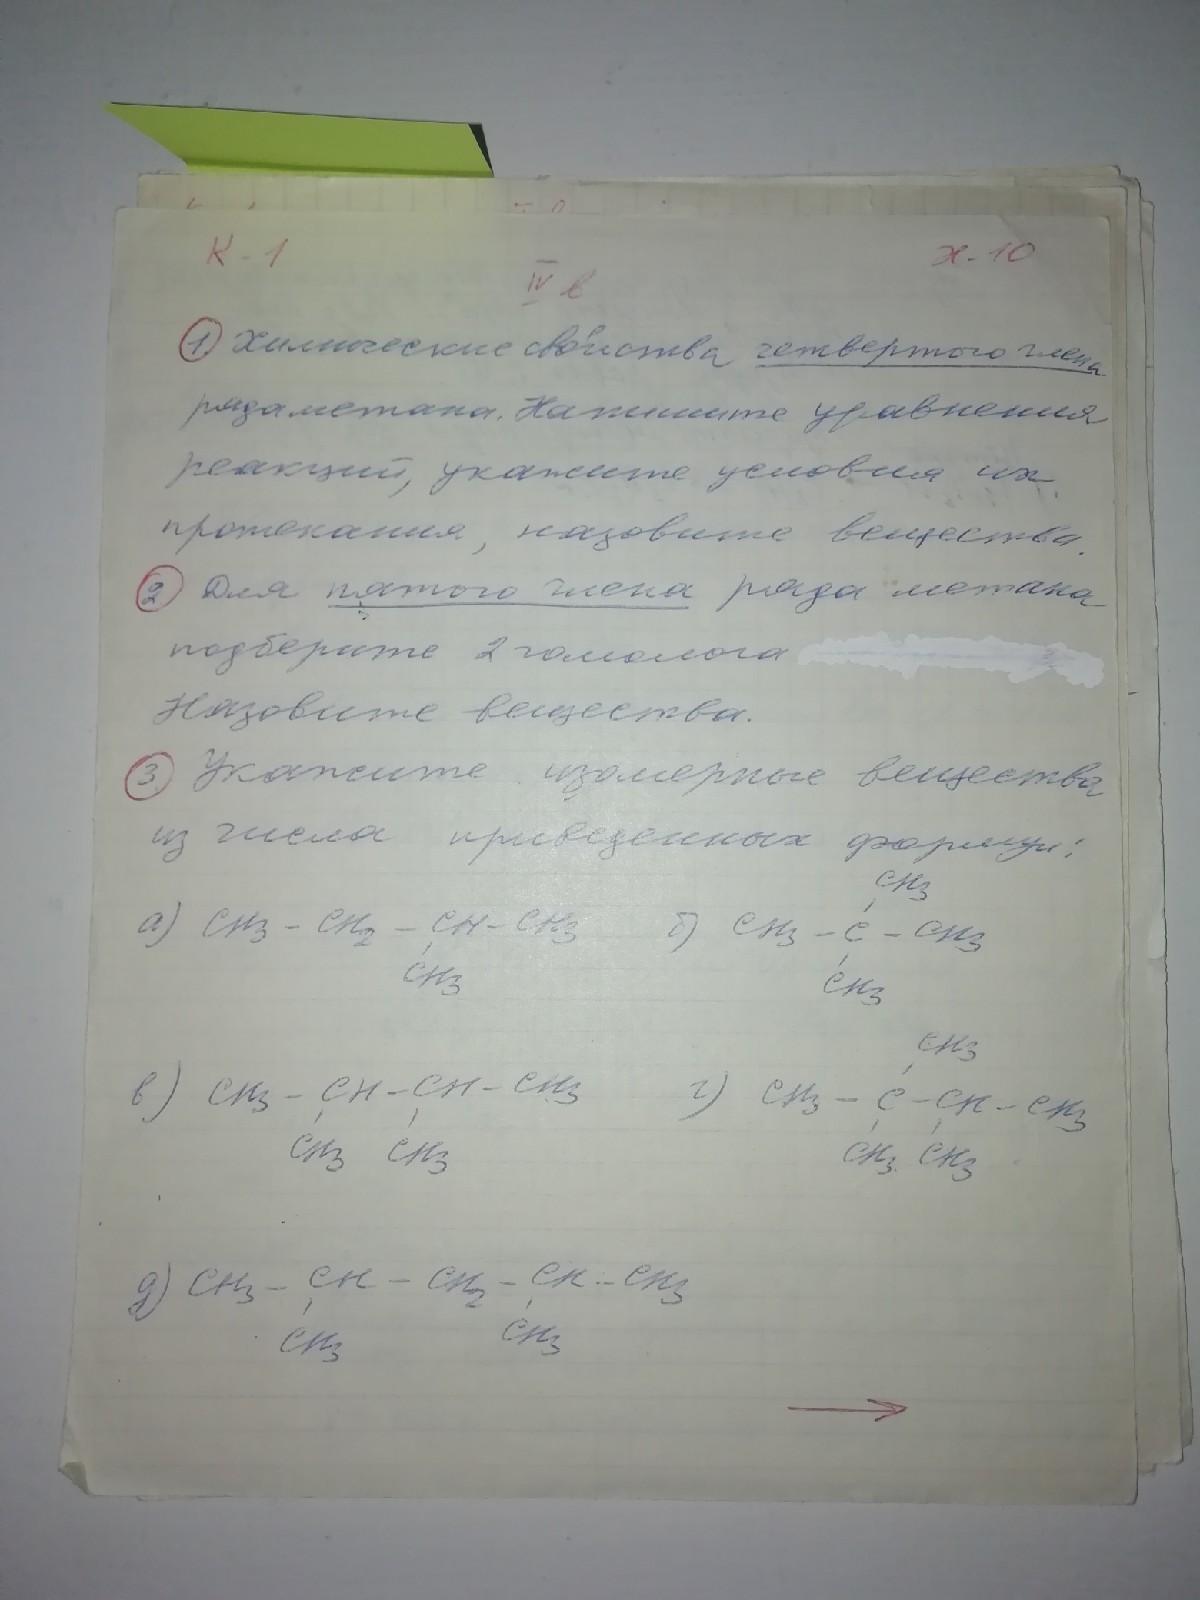 К-1 х-10
IV в
1. Химические свойства четвертого члена
ряда метана. Напишите уравнения
реакций, укажите условия их
протекания, назовите вещества.
2 Для пятого члена ряда метана
подберите 2 гомолога
Назовите вещества.
3. Укажите изомерные вещества
из числа приведенных формул:
CH3
а) CH3 - CH2 - CH - CH3 б) CH3 - C - CH3
CH3 CH3
CH3
в) CH3 - CH - CH - CH3 г) CH3 - C - CH - CH3
CH3 CH3 CH3 CH3
д) CH3 - CH - CH2 - CH - CH3
CH3 CH3